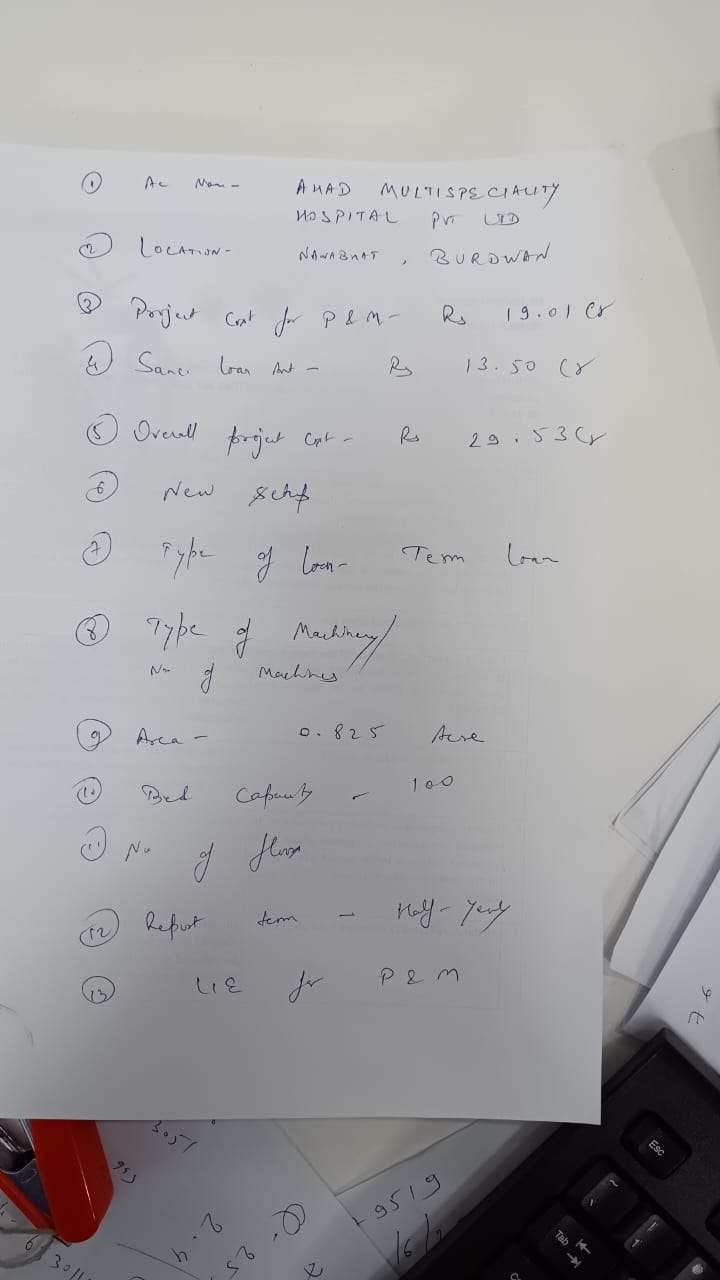 ① Ac Nam - AHAD MULTISPECIALITY
HOSPITAL PVT LTD
② LOCATION - NAWABHAT, BURDWAN
③ Project Cost for P & M - Rs 19.01 Cr
④ Sanc. loan Amt - Rs 13.50 Cr
⑤ Overall project Cost - Rs 29.53 Cr
⑥ New Setup
⑦ Type of loan - Term loan
⑧ Type of Machinery/
No of Machines
⑨ Area - 0.825 Acre
⑩ Bed Capacity - 100
⑪ No of floor
⑫ Report term - Half-Yearly
⑬ LIE for P & M
Esc
Tab
9519